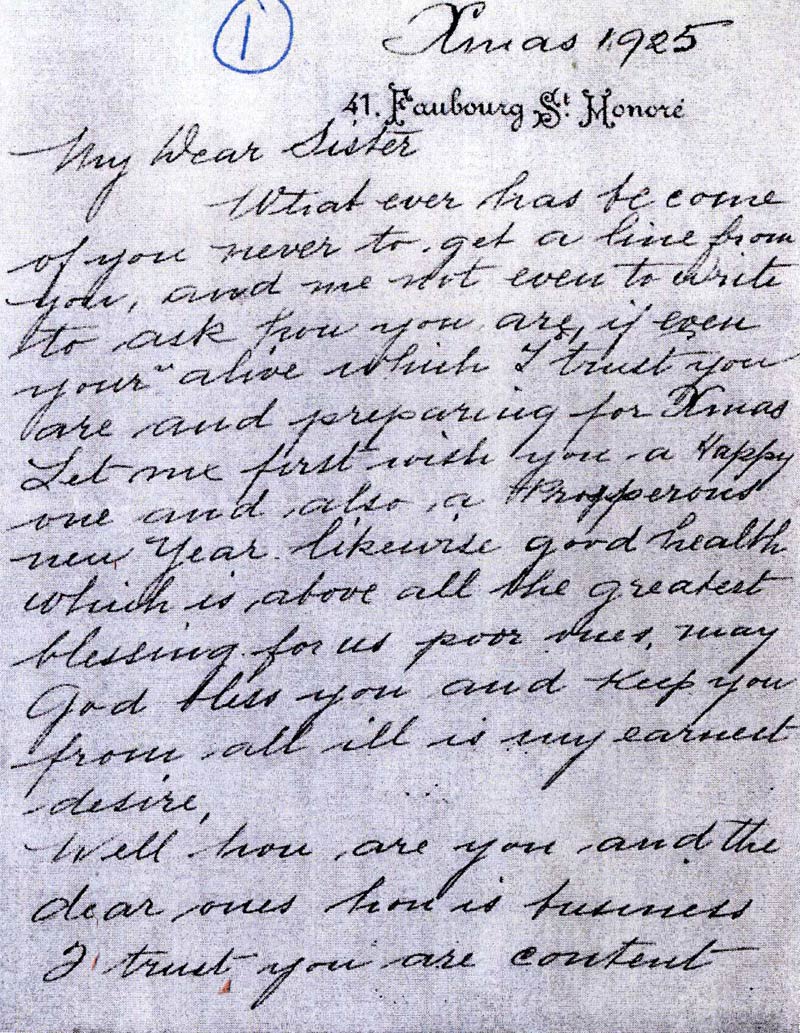 1
Xmas 1925
41. Faubourg St. Honoré
My Dear Sister
What ever has become
of you never to get a line from
you, and me not even to write
to ask how you are, if even
your alive which I trust you
are and preparing for Xmas
Let me first wish you a Happy
one and also a Propperous
new Year likewise good health
which is above all the greatest
blessing for us poor ones, may
God bless you and keep you
from all ill is my earnest
desire,
Well how are you and the
dear ones how is business
I trust you are content